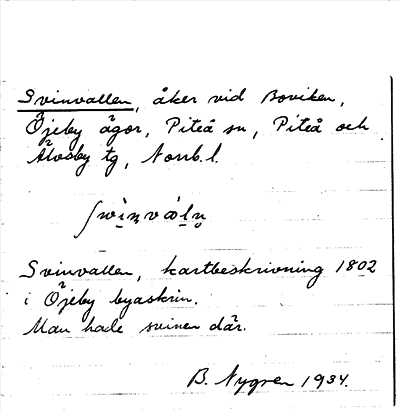 Svinvallen, åker vid Boviken,
Öjeby ägor, Piteå sn, Piteå och
Älvsby tg, Norrb. l.
Svinvallen, kartbeskrivning 1802
i Öjeby byaskrin.
Man hade svinen där.
B. Nygren 1934.